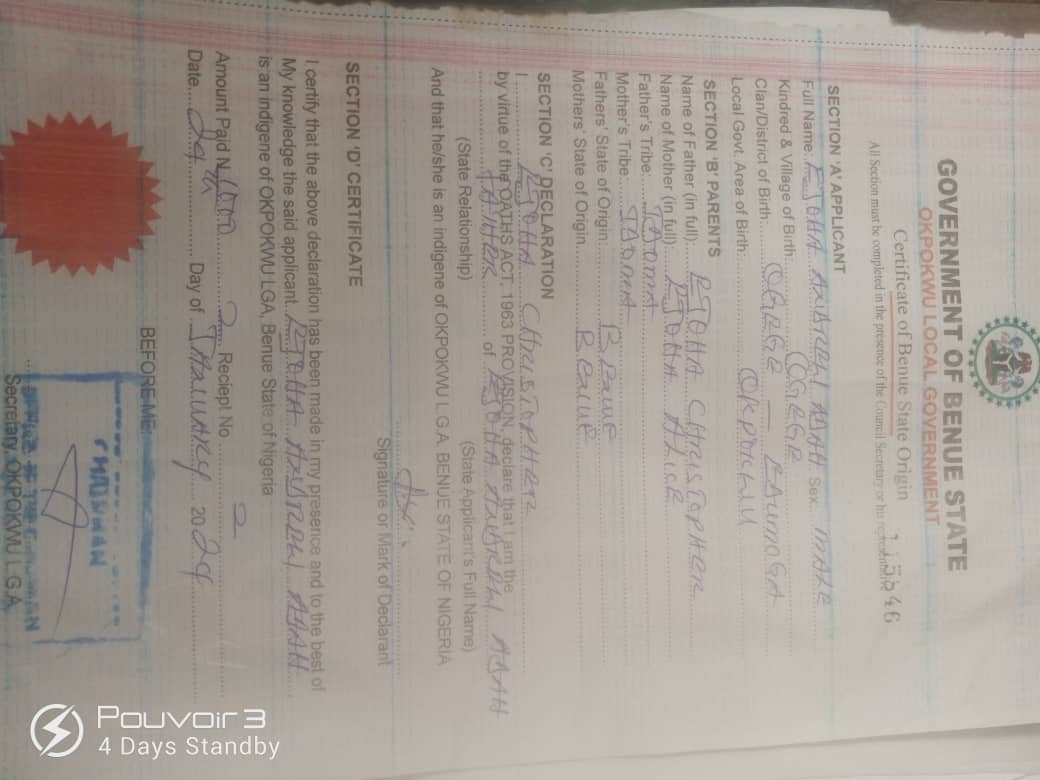 GOVERNMENT OF BENUE STATE
OKPOKWU LOCAL GOVERNMENT
Certificate of Benue State Origin
All Section must be completed in the presence of the Council Secretary or his representative
SECTION 'A' APPLICANT
Full Name: EJOHA ANDREW ADAH Sex: MALE
Kindred & Village of Birth: OGEGE
Clan/District of Birth: OGEGE –
Local Govt. Area of Birth: OKPOKWU
SECTION 'B' PARENTS
Name of Father (in full): EJOHA CHRISTOPHER
Name of Mother (in full): EJOHA ALICE
Father's Tribe: IDOMA
Mother's Tribe: IDOMA
Fathers' State of Origin: BENUE
Mothers' State of Origin: BENUE
SECTION 'C' DECLARATION
I EJOHA CHRISTOPHER
by virtue of the OATHS ACT, 1963 PROVISION, declare that I am the
FATHER of EJOHA ANDREW ADAH
(State Relationship) (State Applicant's Full Name)
And that he/she is an indigene of OKPOKWU L.G.A. BENUE STATE OF NIGERIA
Signature or Mark of Declarant
SECTION 'D' CERTIFICATE
I certify that the above declaration has been made in my presence and to the best of
My knowledge the said applicant EJOHA ANDREW ADAH
is an indigene of OKPOKWU LGA, Benue State of Nigeria
Amount Paid N Reciept No 2
Date Day of JANUARY 2024
BEFORE ME:
Secretary, OKPOKWU L.G.A
Pouvoir 3
4 Days Standby